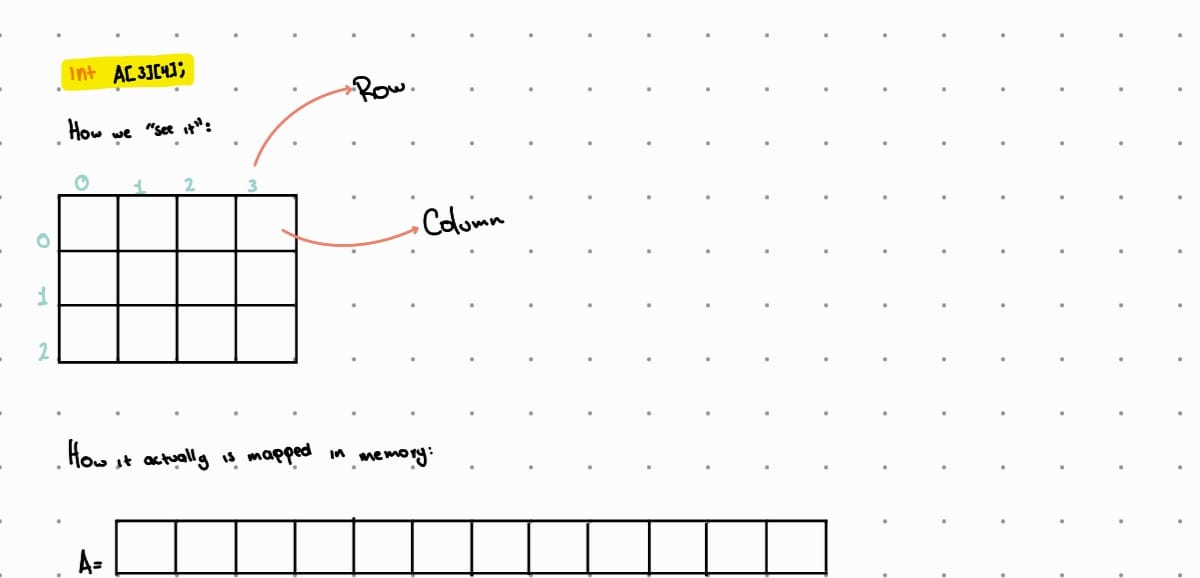 Int A[3][4];
Row
How we "see it":
0 1 2 3
Column
0
1
2
How it actually is mapped in memory:
A=